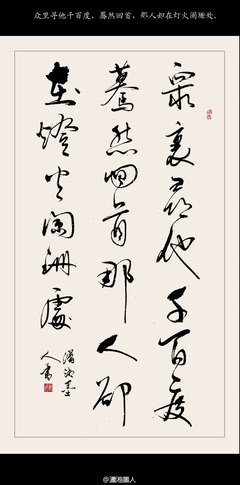 众里寻他千百度，蓦然回首，那人却在灯火阑珊处。
眾裏尋他千百度
驀然回首那人卻
在燈火闌珊處
瀟湘墨
人書
@瀟湘墨人